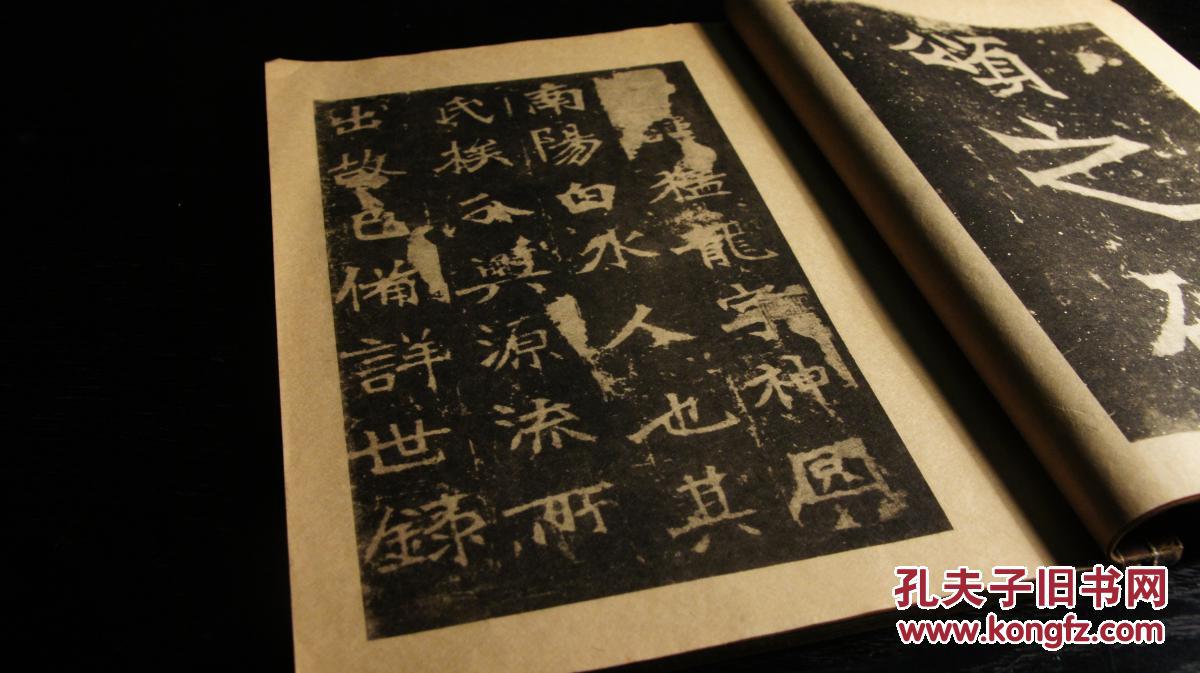 頌之
猛龍字神囧
南陽白水人也其
氏族分興源流所
出故已備詳世録
孔夫子旧书网
www.kongfz.com